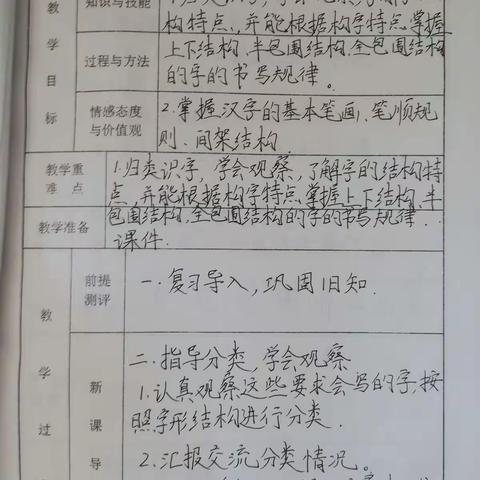 教
知识与技能
构特点、并能根据构字特点掌握
学
过程与方法
上下结构、半包围结构、全包围结构
的字的书写规律。
目
标
情感态度
与价值观
2.掌握汉字的基本笔画、笔顺规
则、间架结构.
教学重
难 点
1.归类识字,学会观察,了解字的结构特
点,并能根据构字特点掌握上下结构、半
教学准备
包围结构,全包围结构的字的书写规律.
课件.
教
学
过
前提
测评
一.复习导入,巩固旧知.
新
课
导
二.指导分类,学会观察
1.认真观察这些要求会写的字,按
照字形结构进行分类.
2.汇报交流,分类情况。